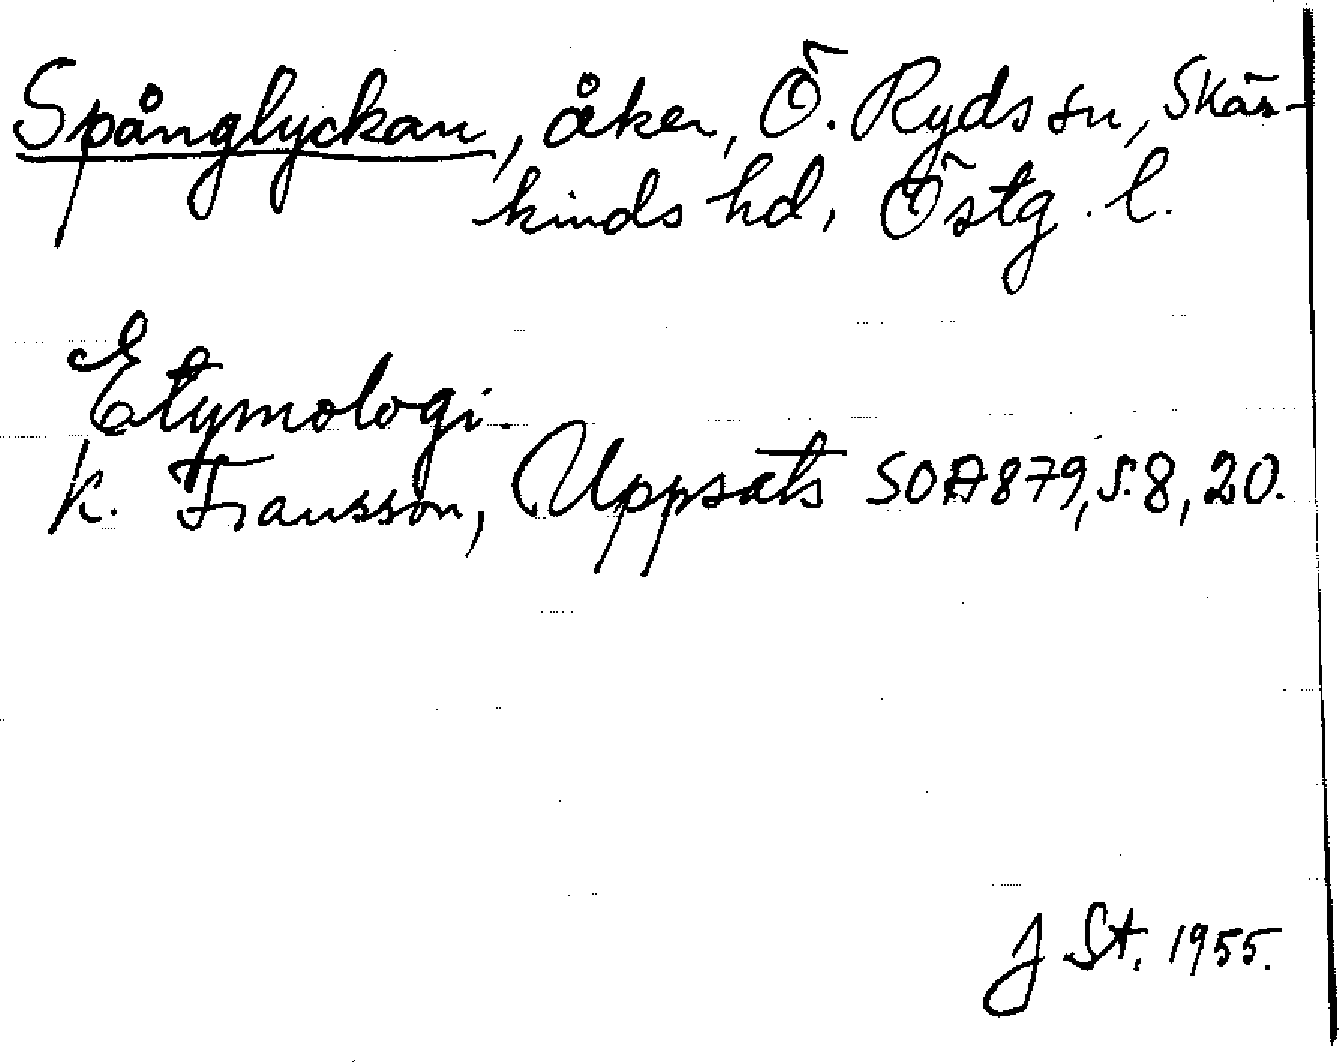 Spånglyckan, åker, Ö. Ryds sn, Skär-
kinds hd, Östg. l.
Etymologi.
K. Fransson, Uppsats SOA879, s. 8, 20.
J St. 1955.